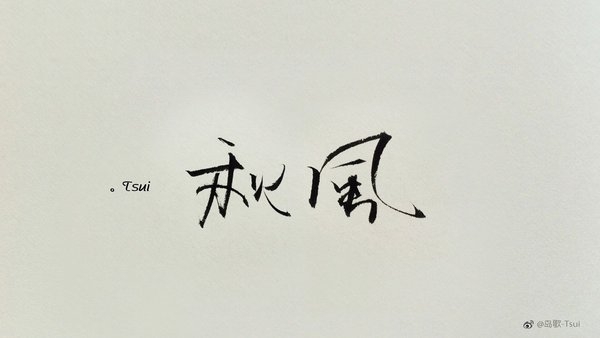 秋風
。Tsui
@岛歌-Tsui